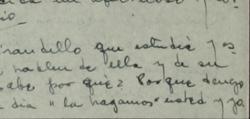 que estudié y es
hablen de ella y de su
sabe por qué? Porque tengo
dia "la hagamos usted y yo